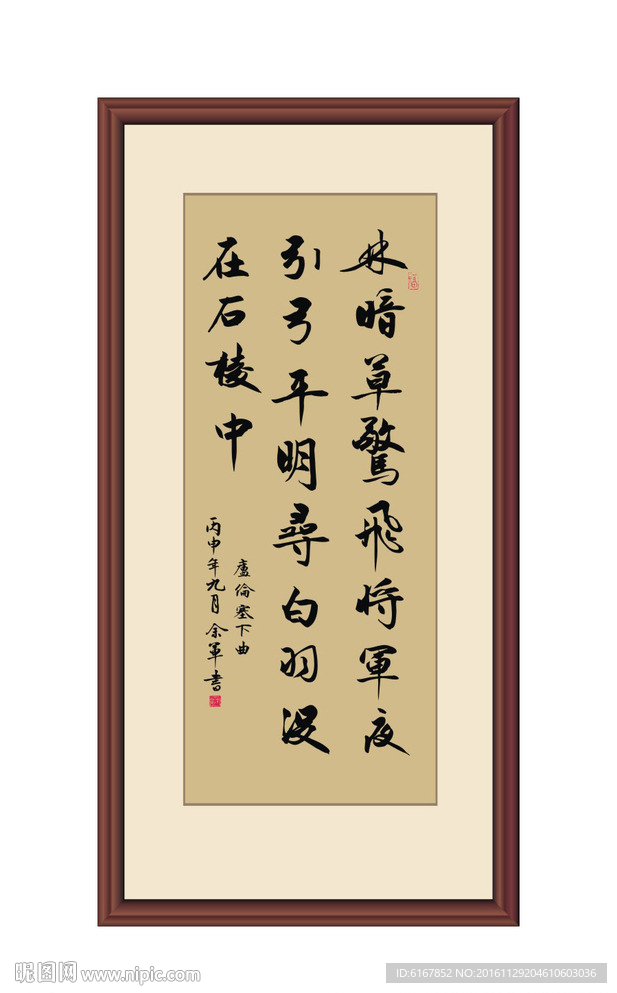 林暗草驚飛将軍夜
引弓平明尋白羽没
在石棱中
盧倫塞下曲
丙申年九月余軍書
昵图网 www.nipic.com
ID:6167852 NO:20161129204610603036